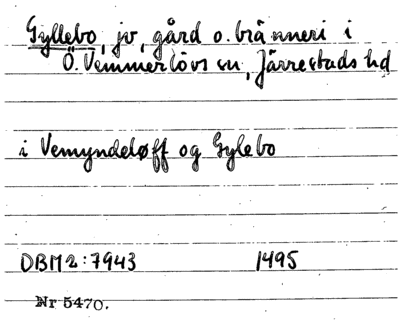 Gyllebo, jv, gård o. bränneri i
Ö. Vemmerlövs sn, Järrestads hd
i Vemyndeløff og Gylebo
DBM 2:7943 1495
Nr 5470.